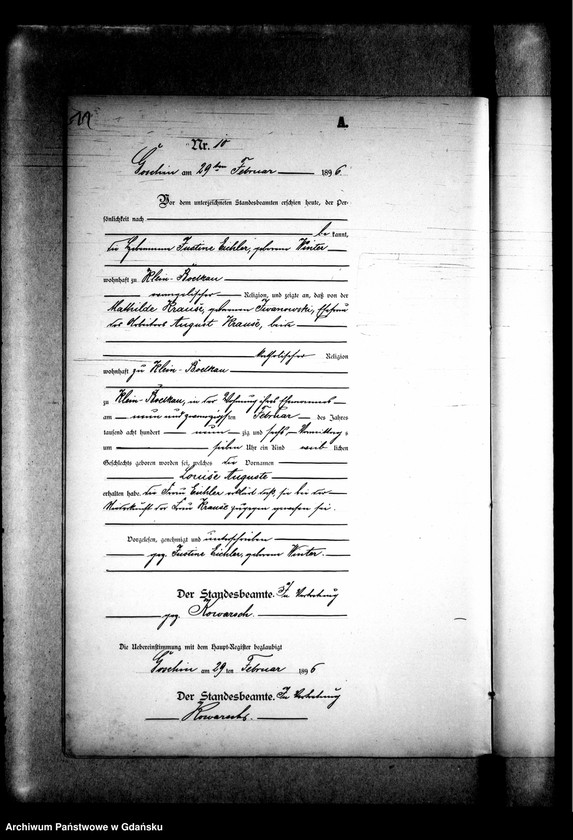 A.
Nr. 10
Goschin am 29ten Februar 1896.
Vor dem unterzeichneten Standesbeamten erschien heute, der Per-
sönlichkeit nach
be kannt,
die Hebamme Justine Eichler, geborene Winter
wohnhaft zu Klein-Böelkau
evangelischer Religion, und zeigte an, daß von der
Mathilde Krause, geborenen Iwanowski, Ehefrau
des Arbeiters August Krause, beide
katholischer Religion
wohnhaft zu Klein-Böelkau
zu Klein-Böelkau, in der Wohnung ihres Ehemannes
am neun und zwanzigsten Februar des Jahres
tausend acht hundert neun zig und sechs, Vormittags
um sieben Uhr ein Kind weib lichen
Geschlechts geboren worden sei, welches die Vornamen
Louise Auguste
erhalten habe. Die Frau Eichler erklärt daß sie bei der
Niederkunft der Frau Krause zugegen gewesen sei.
Vorgelesen, genehmigt und unterschrieben
gez. Justine Eichler, geborene Winter.
Der Standesbeamte. In Vertretung
gez. Kowarsch.
Die Uebereinstimmung mit dem Haupt-Register beglaubigt
Goschin am 29 ten Februar 1896
Der Standesbeamte. In Vertretung
Kowarsch.
Archiwum Państwowe w Gdańsku